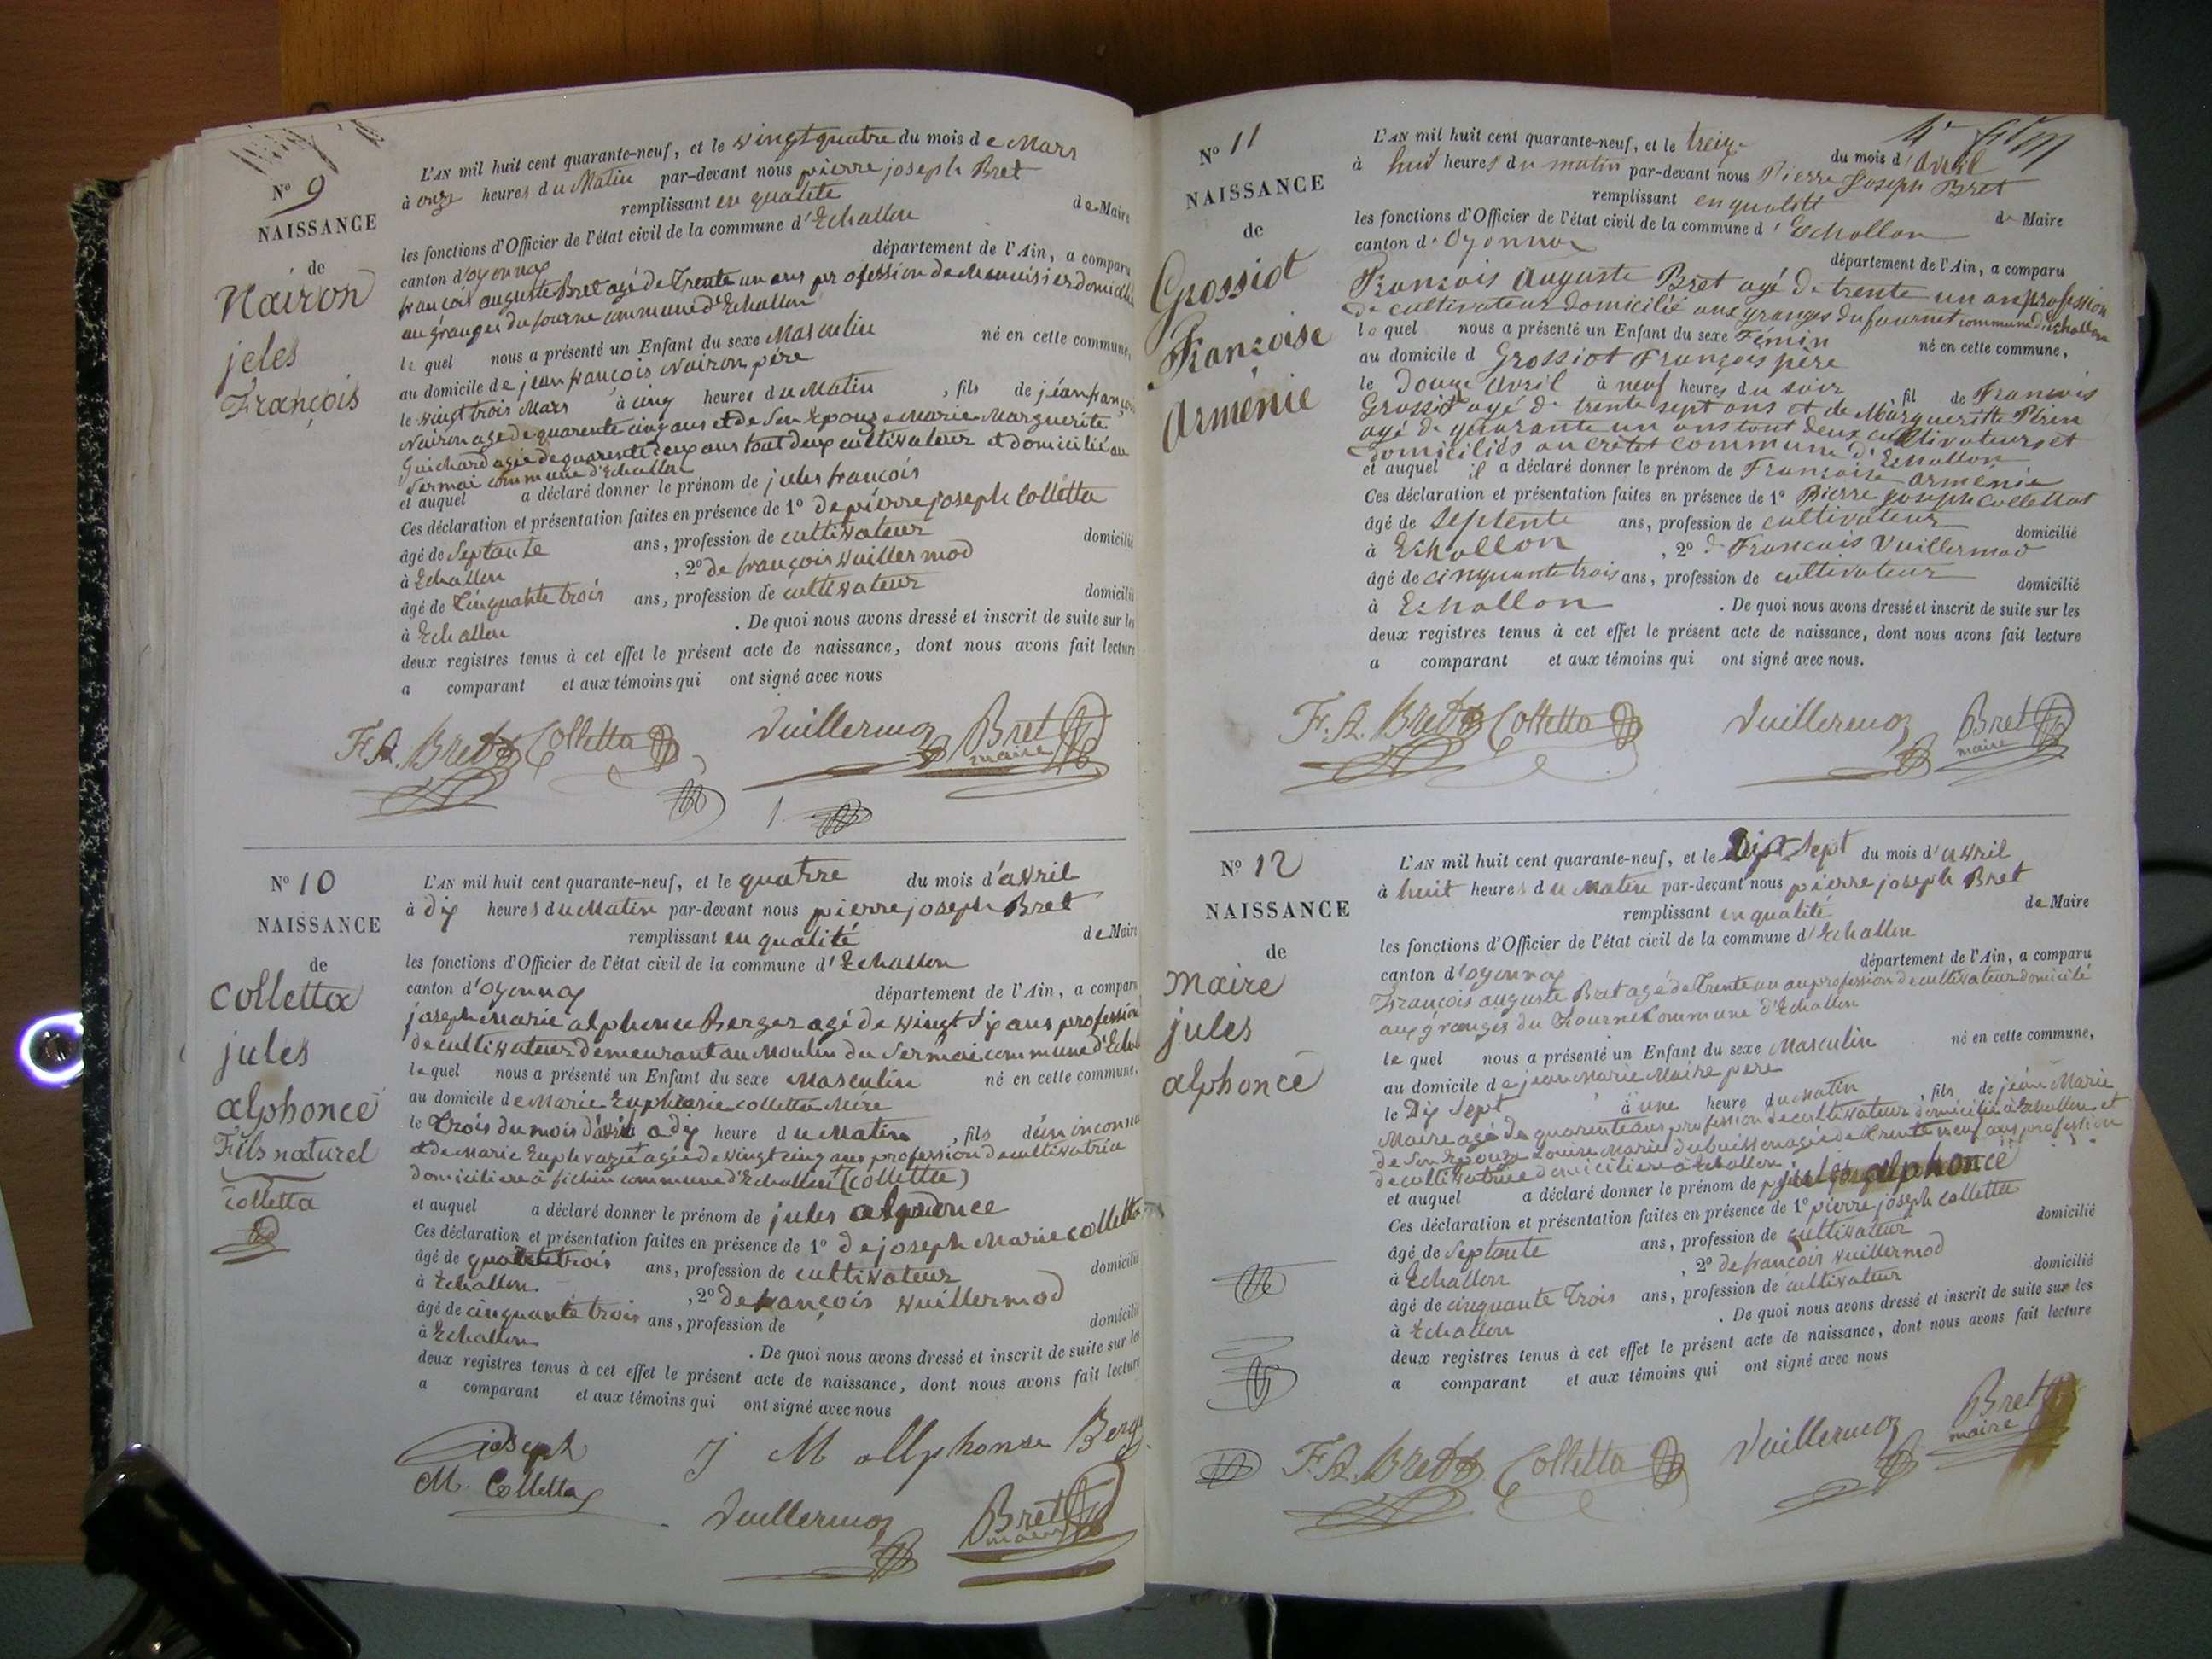 N° 9
NAISSANCE
de
Nairon
jeles
François
L'AN mil huit cent quarante-neuf, et le vingt quatre du mois de Mars
à onze heures du Matin par-devant nous pierre joseph Bret
remplissant en qualité de Maire
les fonctions d'Officier de l'état civil de la commune d'Echallon
canton d'oyonnax département de l'Ain, a comparu
françois auguste Bret agé de Trente un ans profession de Menuisier domicilié
au granges du fourne commune d'Echallon
le quel nous a présenté un Enfant du sexe Masculin né en cette commune,
au domicile de jean françois Nairon père
le vingt trois Mars à cinq heures du Matin , fils de jéan françois
Nairon age de quarente cinq ans et de Son Epouze Marie Marguerite
Guichard agée de quarente deux ans tout deux cultivateur et domicilié au
Sermai commune d'Echallon
et auquel a déclaré donner le prénom de jules françois
Ces déclaration et présentation faites en présence de 1° de pierre joseph Colletta
âgé de Septante ans, profession de cultivateur domicilié
à Echallon , 2° de françois Vuillermod
âgé de Cinquante trois ans, profession de cultivateur domicilié
à Echallon . De quoi nous avons dressé et inscrit de suite sur les
deux registres tenus à cet effet le présent acte de naissance, dont nous avons fait lecture
a comparant et aux témoins qui ont signé avec nous
F. A. Bret Colletta Vuillermoz Bret
maire
N° 10
NAISSANCE
de
Colletta
jules
alphonce
Fils naturel
colletta
L'AN mil huit cent quarante-neuf, et le quatre du mois d'avril
à dix heures du Matin par-devant nous pierre joseph Bret
remplissant en qualité de Maire
les fonctions d'Officier de l'état civil de la commune d'Echallon
canton d'oyonnax département de l'Ain, a comparu
joseph Marie alphonce Berger agé de vingt six ans profession
de cultivateur demeurant au Moulin du Sermai commune d'Echal
le quel nous a présenté un Enfant du sexe Masculin né en cette commune,
au domicile de Marie Euphrasie colletta Mère
le Trois du mois d'avril a dix heure du Matin , fils de un inconnu
et de Marie Euphrazie agée de vingt cinq ans profession de cultivatrice
domiciliere à commune d'Echallon (Colletta)
et auquel a déclaré donner le prénom de jules alphonce
Ces déclaration et présentation faites en présence de 1° de joseph Marie colletta
âgé de quarante trois ans, profession de cultivateur domicilié
à Echallon , 2° de françois Vuillermod
âgé de cinquante trois ans, profession de domicilié
à Echallon . De quoi nous avons dressé et inscrit de suite sur les
deux registres tenus à cet effet le présent acte de naissance, dont nous avons fait lecture
a comparant et aux témoins qui ont signé avec nous
joseph J M allphonse Berg
M. Colletta
Vuillermoz Bret
maire
N° 11
NAISSANCE
de
Grossiot
Françoise
Arménie
L'AN mil huit cent quarante-neuf, et le treize du mois d'Avril
à huit heures du matin par-devant nous Pierre Joseph Bret
remplissant en qualité de Maire
les fonctions d'Officier de l'état civil de la commune d'Echallon
canton d'Oyonnax département de l'Ain, a comparu
François Auguste Bret agé de trente un an profession
de cultivateur domicilié aux granges du fournet commune d'Echallon
le quel nous a présenté un Enfant du sexe Fémin né en cette commune,
au domicile d Grossiot François père
le Douze Avril à neuf heures du soir , fil de François
Grossiot agé de trente sept ans et de Margueritte Périn
agé de quarante un ans tout deux cultivateurs et
domiciliés au cretet commune d'Echallon
et auquel il a déclaré donner le prénom de Françoise Arménie
Ces déclaration et présentation faites en présence de 1° Pierre Joseph Collettat
âgé de Septente ans, profession de cultivateur domicilié
à Echallon , 2° d François Vuillermod
âgé de cinquante trois ans, profession de cultivateur domicilié
à Echallon . De quoi nous avons dressé et inscrit de suite sur les
deux registres tenus à cet effet le présent acte de naissance, dont nous avons fait lecture
a comparant et aux témoins qui ont signé avec nous.
F. A. Bret Colletta Vuillermoz Bret
maire
N° 12
NAISSANCE
de
Maire
jules
alphonce
L'AN mil huit cent quarante-neuf, et le Dix Sept du mois d'avril
à huit heures du Matin par-devant nous pierre joseph Bret
remplissant en qualité de Maire
les fonctions d'Officier de l'état civil de la commune d'Echallon
canton d'oyonnax département de l'Ain, a comparu
François auguste Bret agé de Trente un an profession de cultivateur domicilié
aux granges du Fournet commune d'Echallon
le quel nous a présenté un Enfant du sexe Masculin né en cette commune,
au domicile de jean Marie Maire père
le Dix Sept à une heure du Matin , fils de jéan Marie
Maire agé de quarente ans profession de cultivateur domicilié à Echallon et
de Son Epouze Louise Mariel dubuisson agée de trente neuf ans profession
de cultivatrice domiciliere à Echallon
et auquel a déclaré donner le prénom de jules alphonce
Ces déclaration et présentation faites en présence de 1° pierre joseph colletta
âgé de Septante ans, profession de cultivateur domicilié
à Echallon , 2° de françois Vuillermod
âgé de cinquante trois ans, profession de cultivateur domicilié
à Echallon . De quoi nous avons dressé et inscrit de suite sur les
deux registres tenus à cet effet le présent acte de naissance, dont nous avons fait lecture
a comparant et aux témoins qui ont signé avec nous
F. A. Bret Colletta Vuillermoz Bret
maire